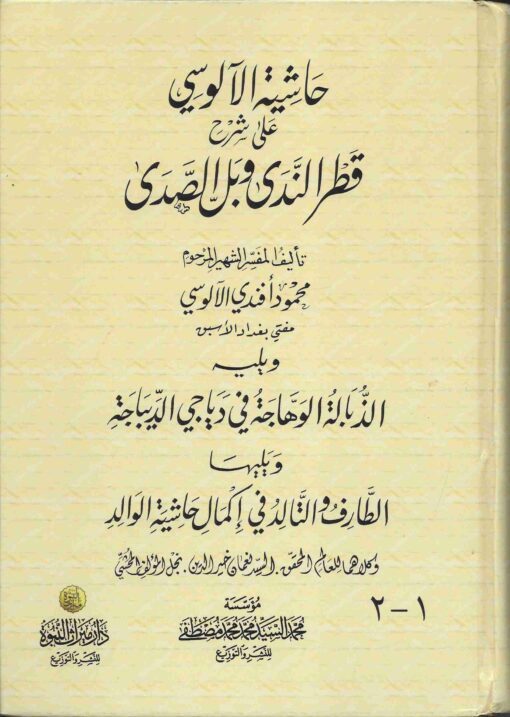 حَاشِية الآلوسِي
عَلى شَرْح
قَطْر النَّدَى وَبَلّ الصَّدَى
تأليف المفسِّر الشهير المرحوم
محمود أفندي الآلوسي
مفتي بغداد الأسبق
ويليه
الذُّبَالَةُ الوَهَّاجَةُ في دَيَاجِي الدِّيبَاجَةِ
وَيليها
الطَّارِفُ والتَّالِدُ في إكمَالِ حَاشِيَةِ الوَالِدِ
وكلاهما للعالم المحقق . السيد نعمان خير الدين . نجل المؤلف المحشّي
١ - ٢
مؤسسة
محمد السيد محمد محمد مصطفى
للنشر والتوزيع
دار ميراث النبوة
للنشر والتوزيع